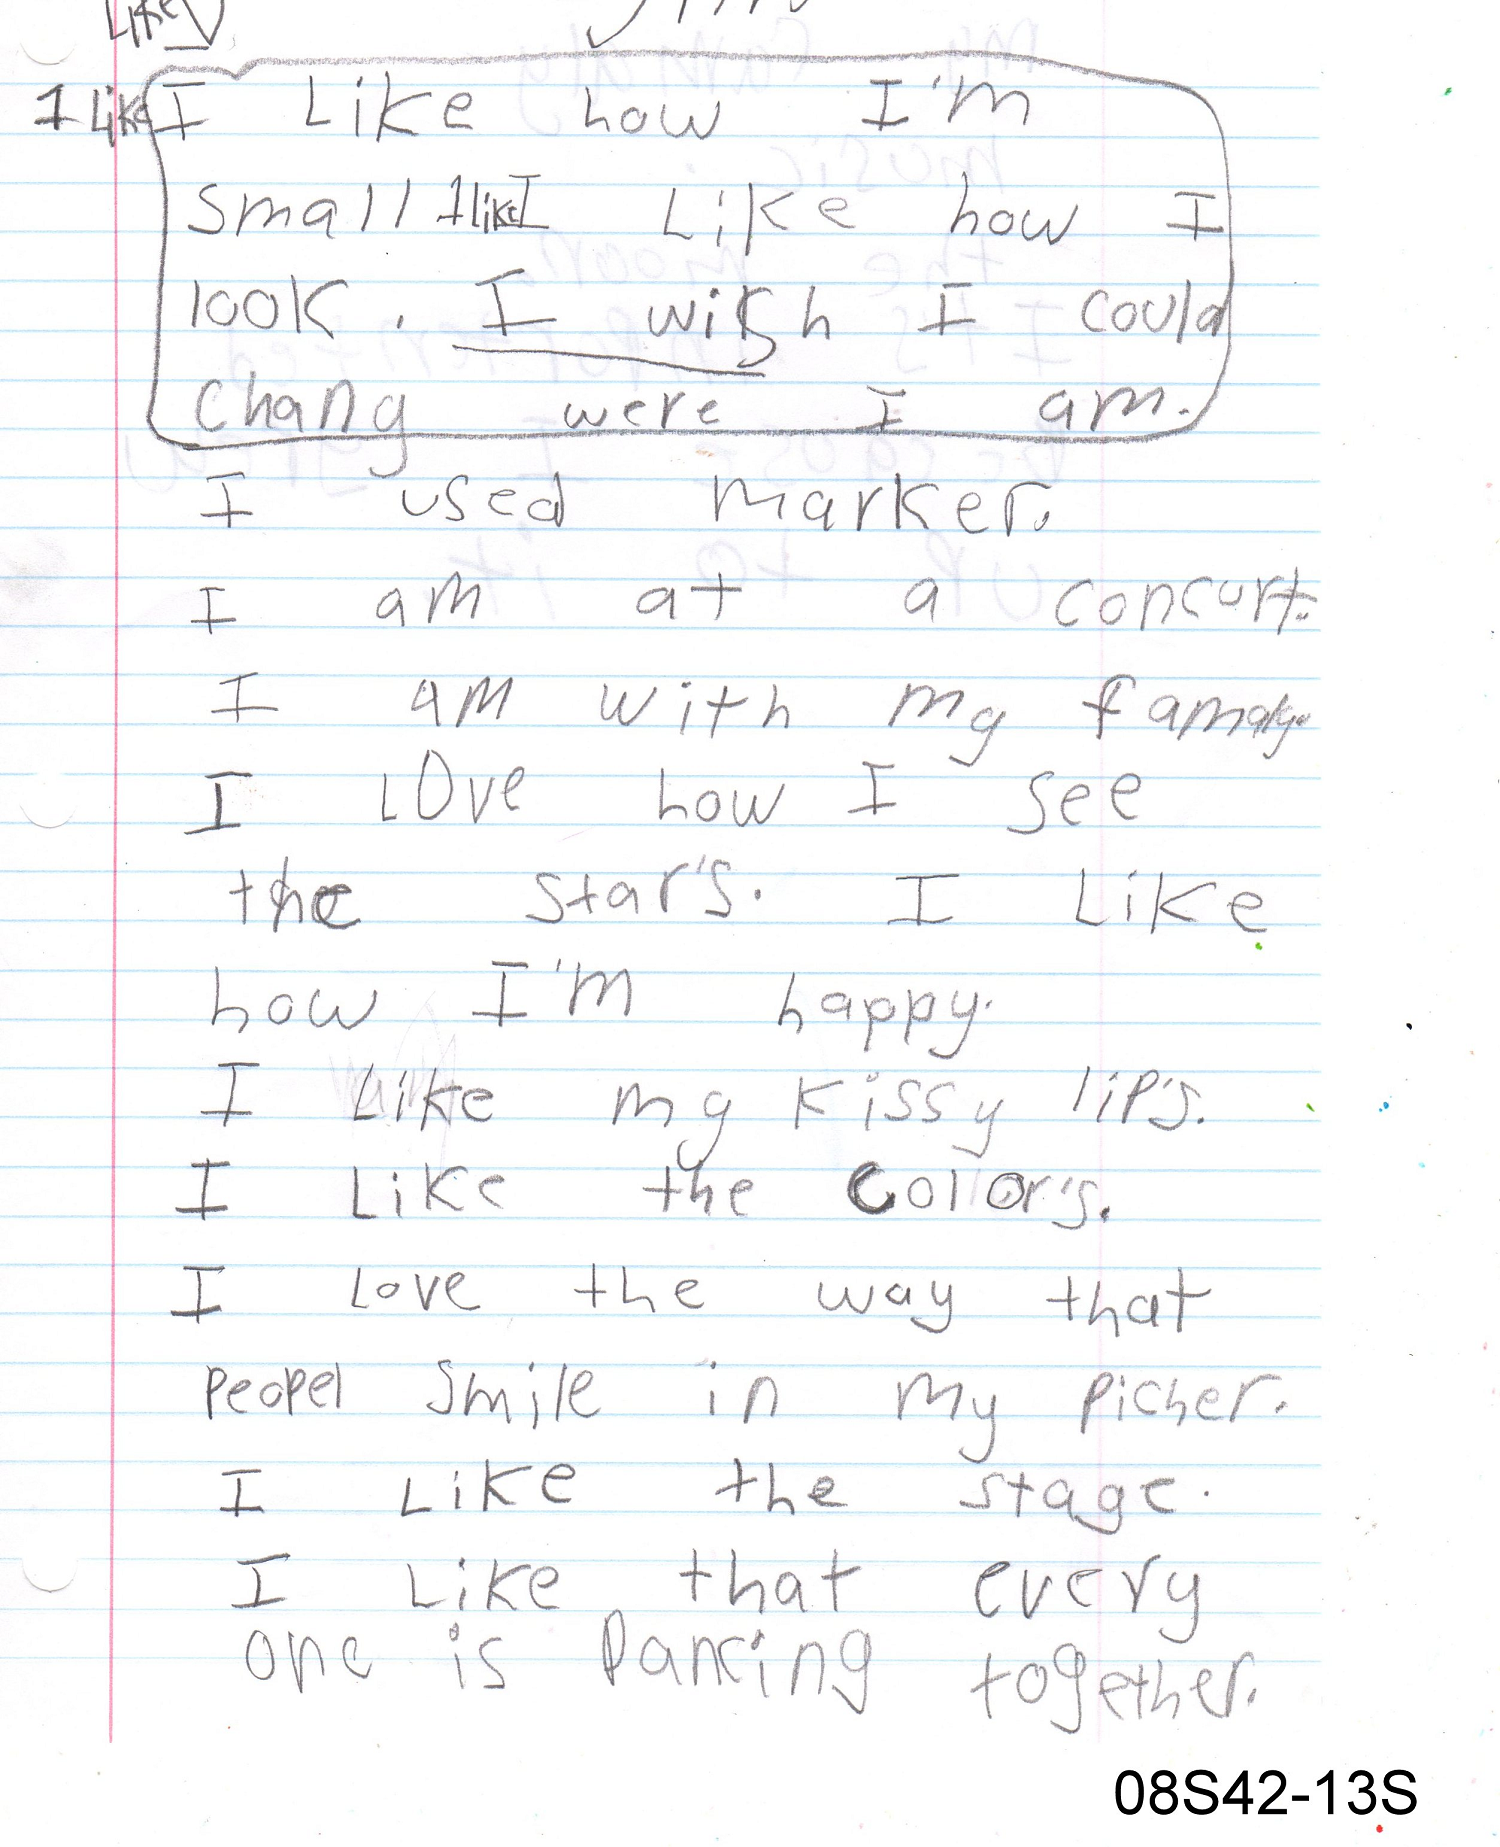 Like
I Like I Like how I'm
small I like I Like how I
look. I wish I could
chang were I am.
I used marker.
I am at a concurt.
I am with my famaly.
I LOve how I see
the star's. I Like
how I'm happy.
I Like my Kissy lip's.
I Like the Color's.
I Love the way that
Peopel Smile in my Picher.
I Like the stage.
I Like that every
one is Dancing together.
08S42-13S